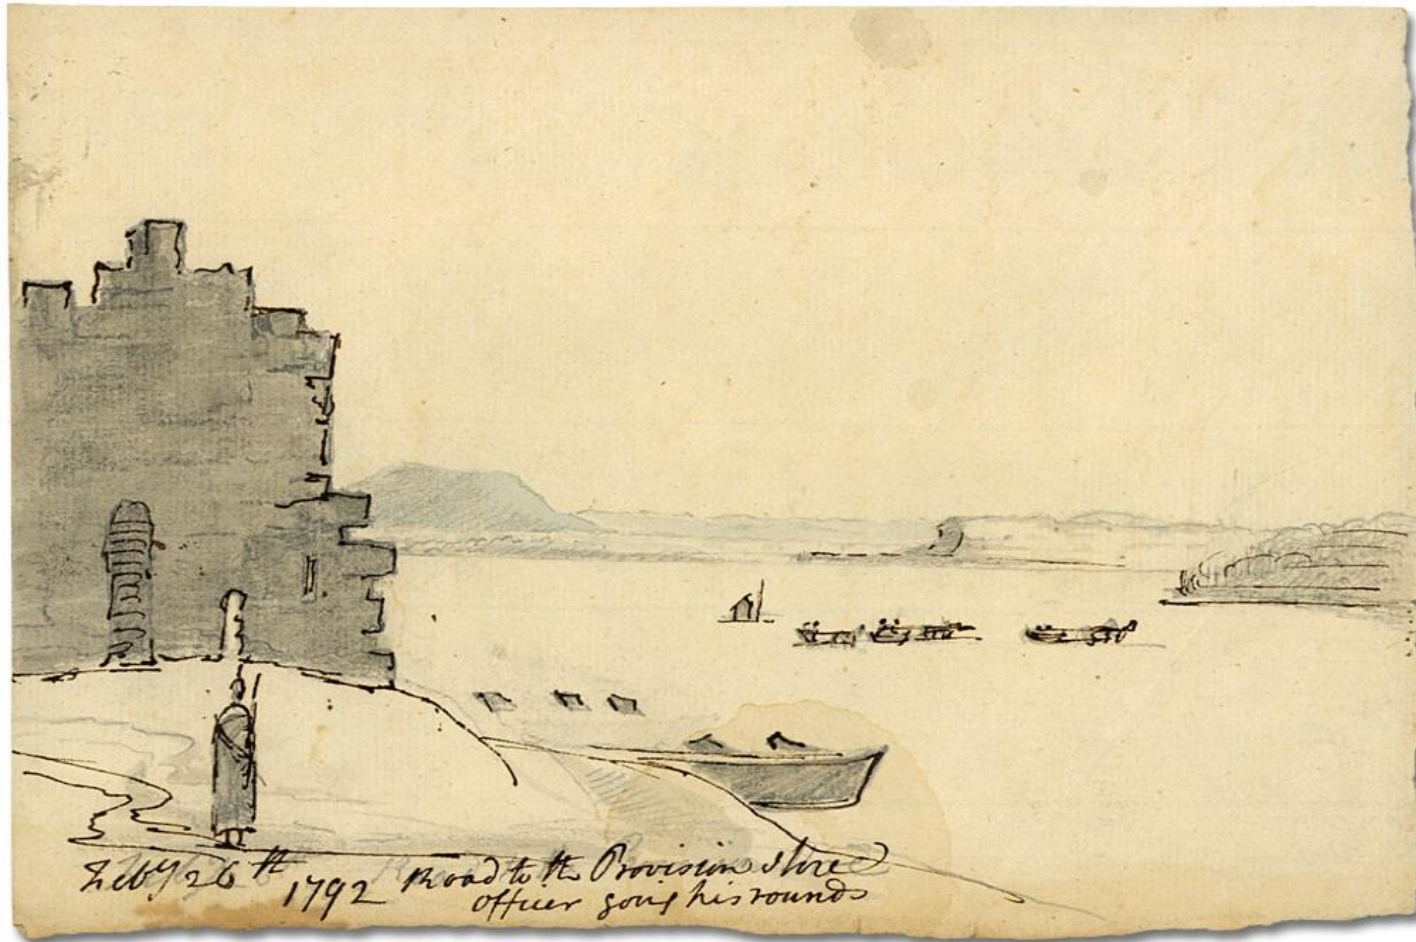 Feby 26th 1792 Road to the Provision store
officer going his rounds